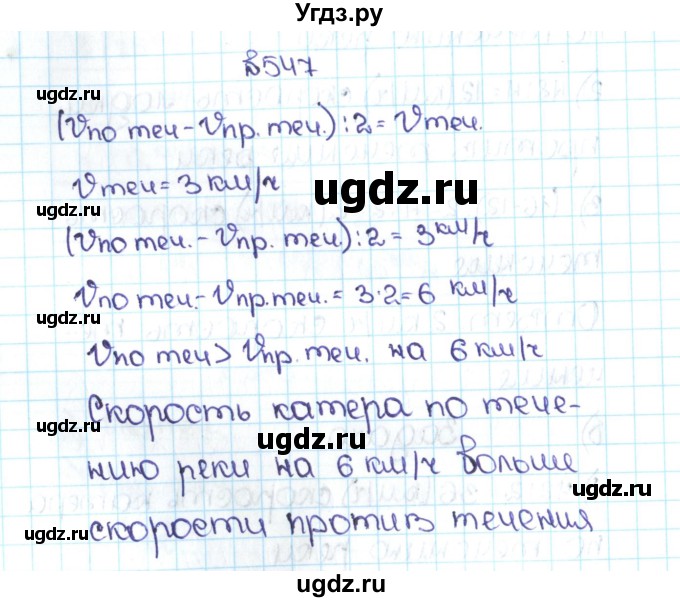 Угдз.ру
№547
ugdz.ru
(Vпо теч - Vпр. теч.) : 2 = Vтеч.
Vтеч = 3 км/ч
ugdz.ru
ugdz.ru
(Vпо теч. - Vпр. теч.) : 2 = 3 км/ч
Vпо теч. - Vпр. теч. = 3·2 = 6 км/ч
ugdz.ru
Vпо теч > Vпр. теч. на 6 км/ч
Скорость катера по тече-
ugdz.ru
нию реки на 6 км/ч больше
ugdz.ru
скорости против течения
ugdz.ru
ugdz.ru